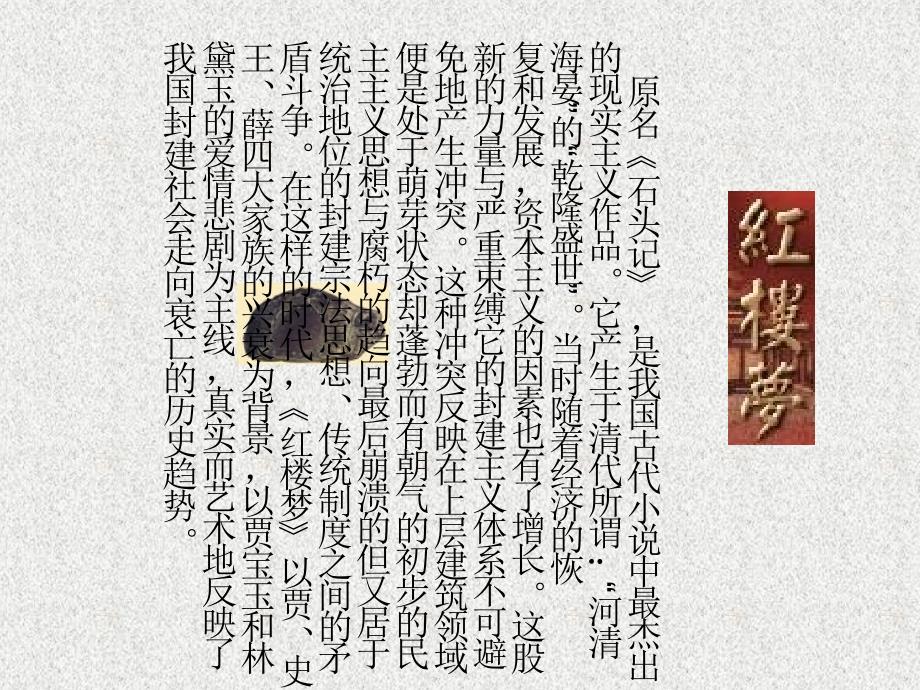 紅樓夢
原名《石头记》,是我国古代小说中最杰出
的现实主义作品。它产生于清代所谓¨“河清
海晏”的“乾隆盛世”。当时随着经济的恢
复和发展,资本主义的因素也有了增长。这股
新的力量与严重束缚它的封建主义体系不可避
免地产生冲突。这种冲突反映在上层建筑领域
便是处于萌芽状态却蓬勃而有朝气的初步的民
主主义思想与腐朽的趋向最后崩溃的但又居于
统治地位的封建宗法思想、传统制度之间的矛
盾斗争。在这样的时代,《红楼梦》以贾、史
王、薛四大家族的兴衰为背景,以贾宝玉和林
黛玉的爱情悲剧为主线,真实而艺术地反映了
我国封建社会走向衰亡的历史趋势。